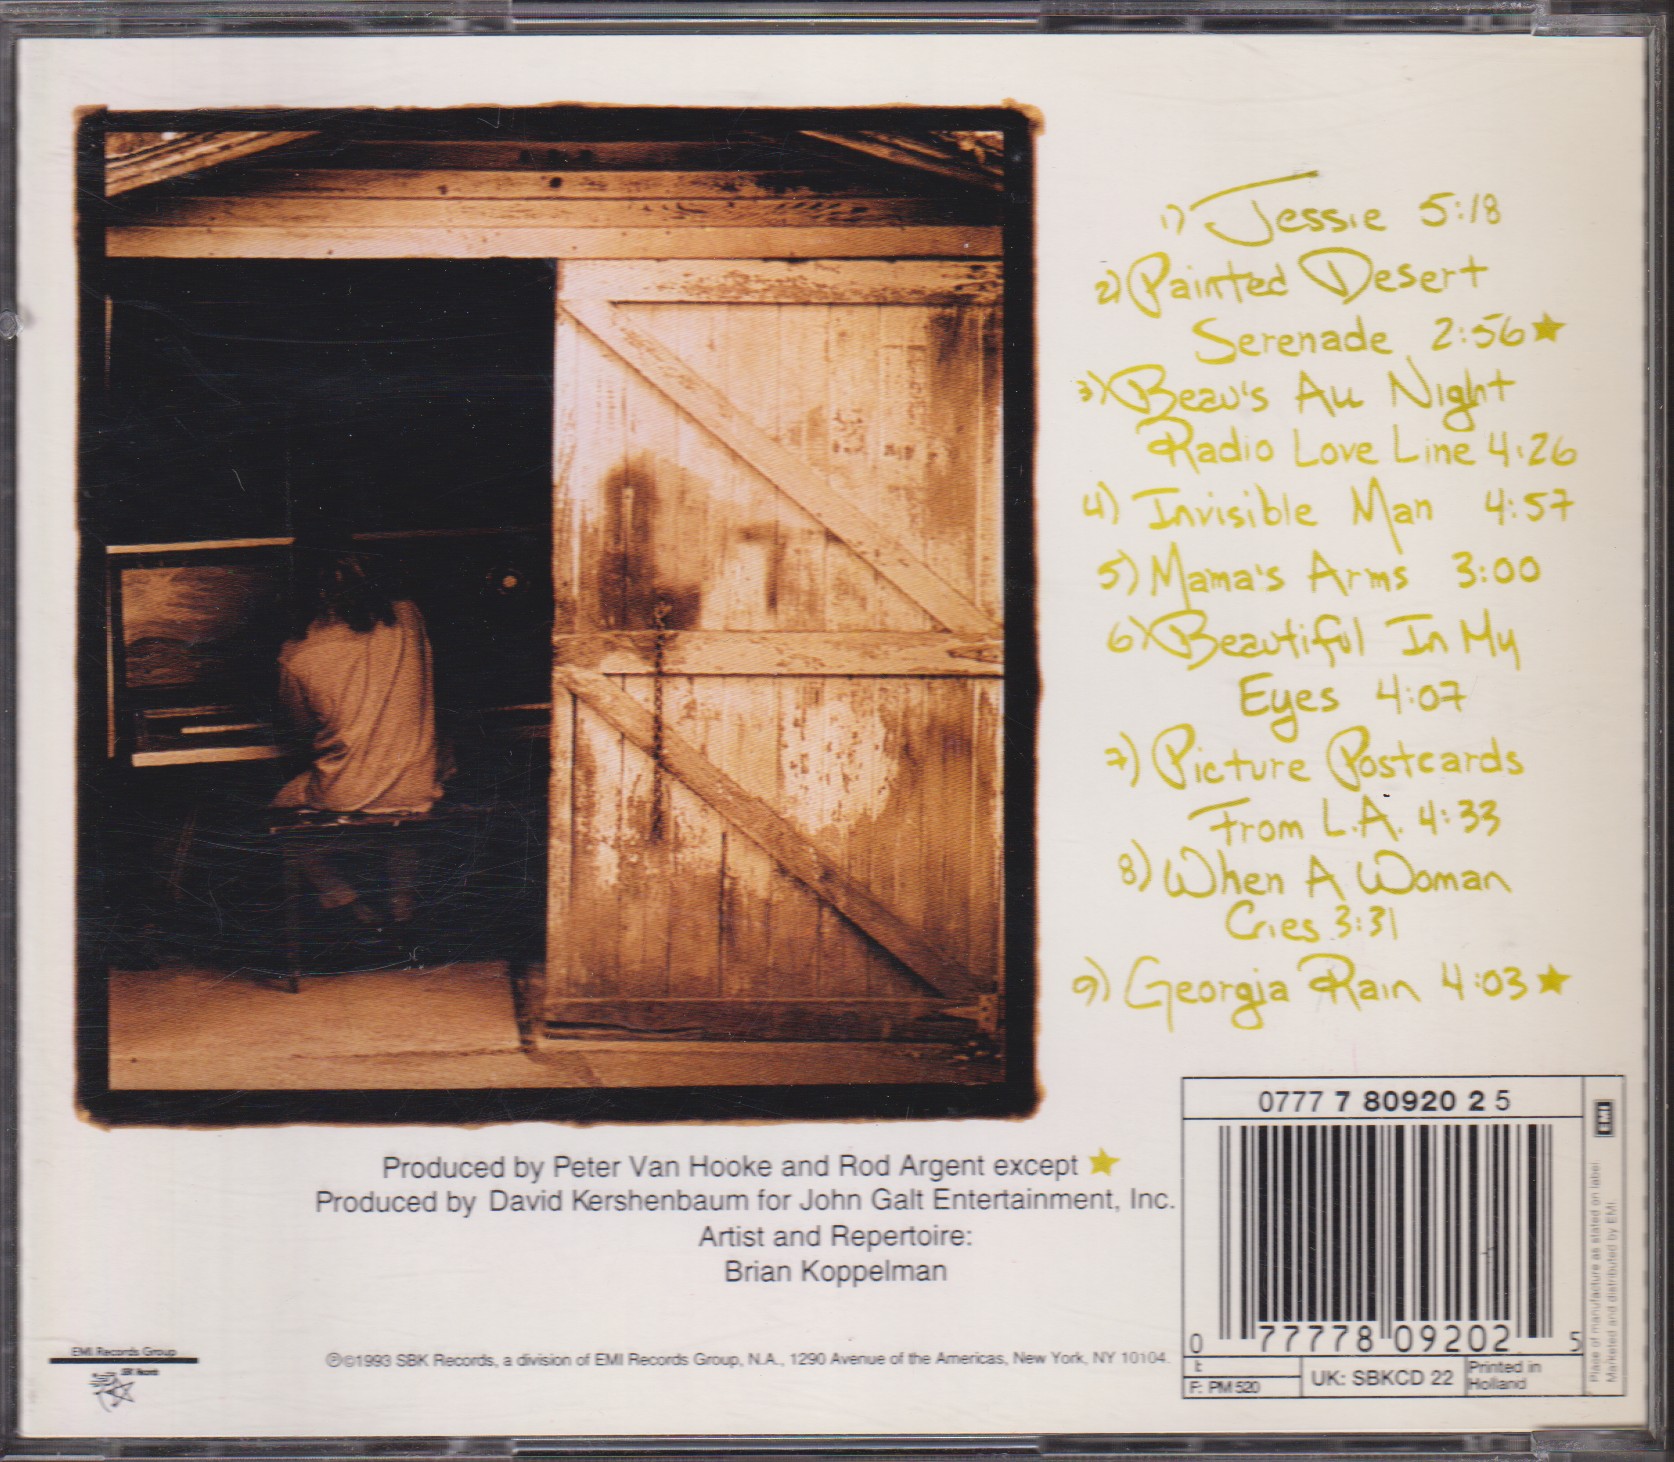 1) Jessie 5:18
2) Painted Desert
Serenade 2:56 ★
3) Beau's All Night
Radio Love Line 4:26
4) Invisible Man 4:57
5) Mama's Arms 3:00
6) Beautiful In My
Eyes 4:07
7) Picture Postcards
From L.A. 4:33
8) When A Woman
Cries 3:31
9) Georgia Rain 4:03 ★
Produced by Peter Van Hooke and Rod Argent except ★
Produced by David Kershenbaum for John Galt Entertainment, Inc.
Artist and Repertoire:
Brian Koppelman
EMI Records Group
SBK Records
℗©1993 SBK Records, a division of EMI Records Group, N.A., 1290 Avenue of the Americas, New York, NY 10104.
0777 7 80920 2 5
0 77778 09202 5
t
F: PM 520
UK: SBKCD 22
Printed in
Holland
EMI
Place of manufacture as stated on label
Marketed and distributed by EMI